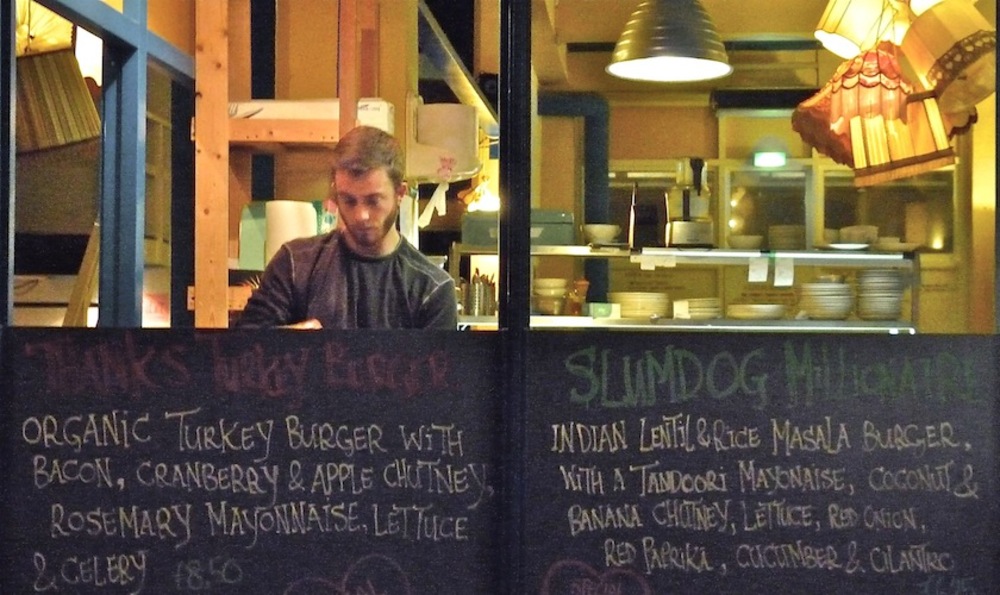 THANKS TURKEY BURGER
ORGANIC TURKEY BURGER WITH
BACON, CRANBERRY & APPLE CHUTNEY,
ROSEMARY MAYONNAISE, LETTUCE
& CELERY £8,50
SLUMDOG MILLIONAIRE
INDIAN LENTIL & RICE MASALA BURGER,
WITH A TANDOORI MAYONAISE, COCONUT &
BANANA CHUTNEY, LETTUCE, RED ONION,
RED PAPRIKA, CUCUMBER & CILANTRO
SPECIAL